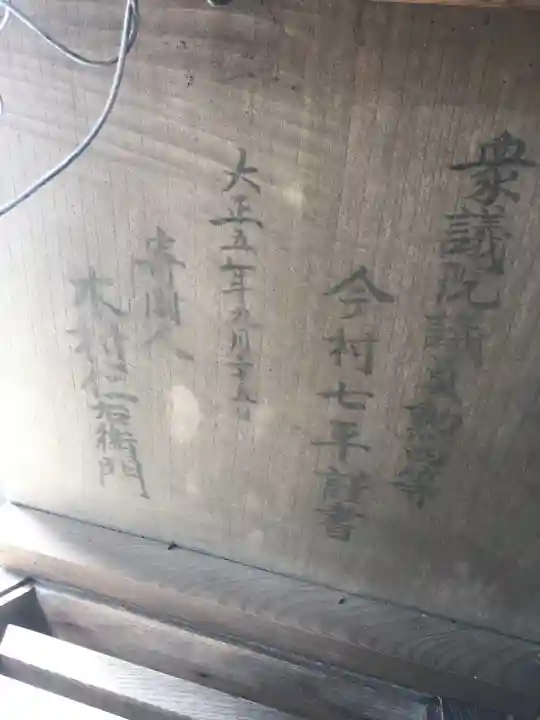 衆議院議員勲四等
今村七平謹書
大正五年九月廿五日
人
木村仁右衛門